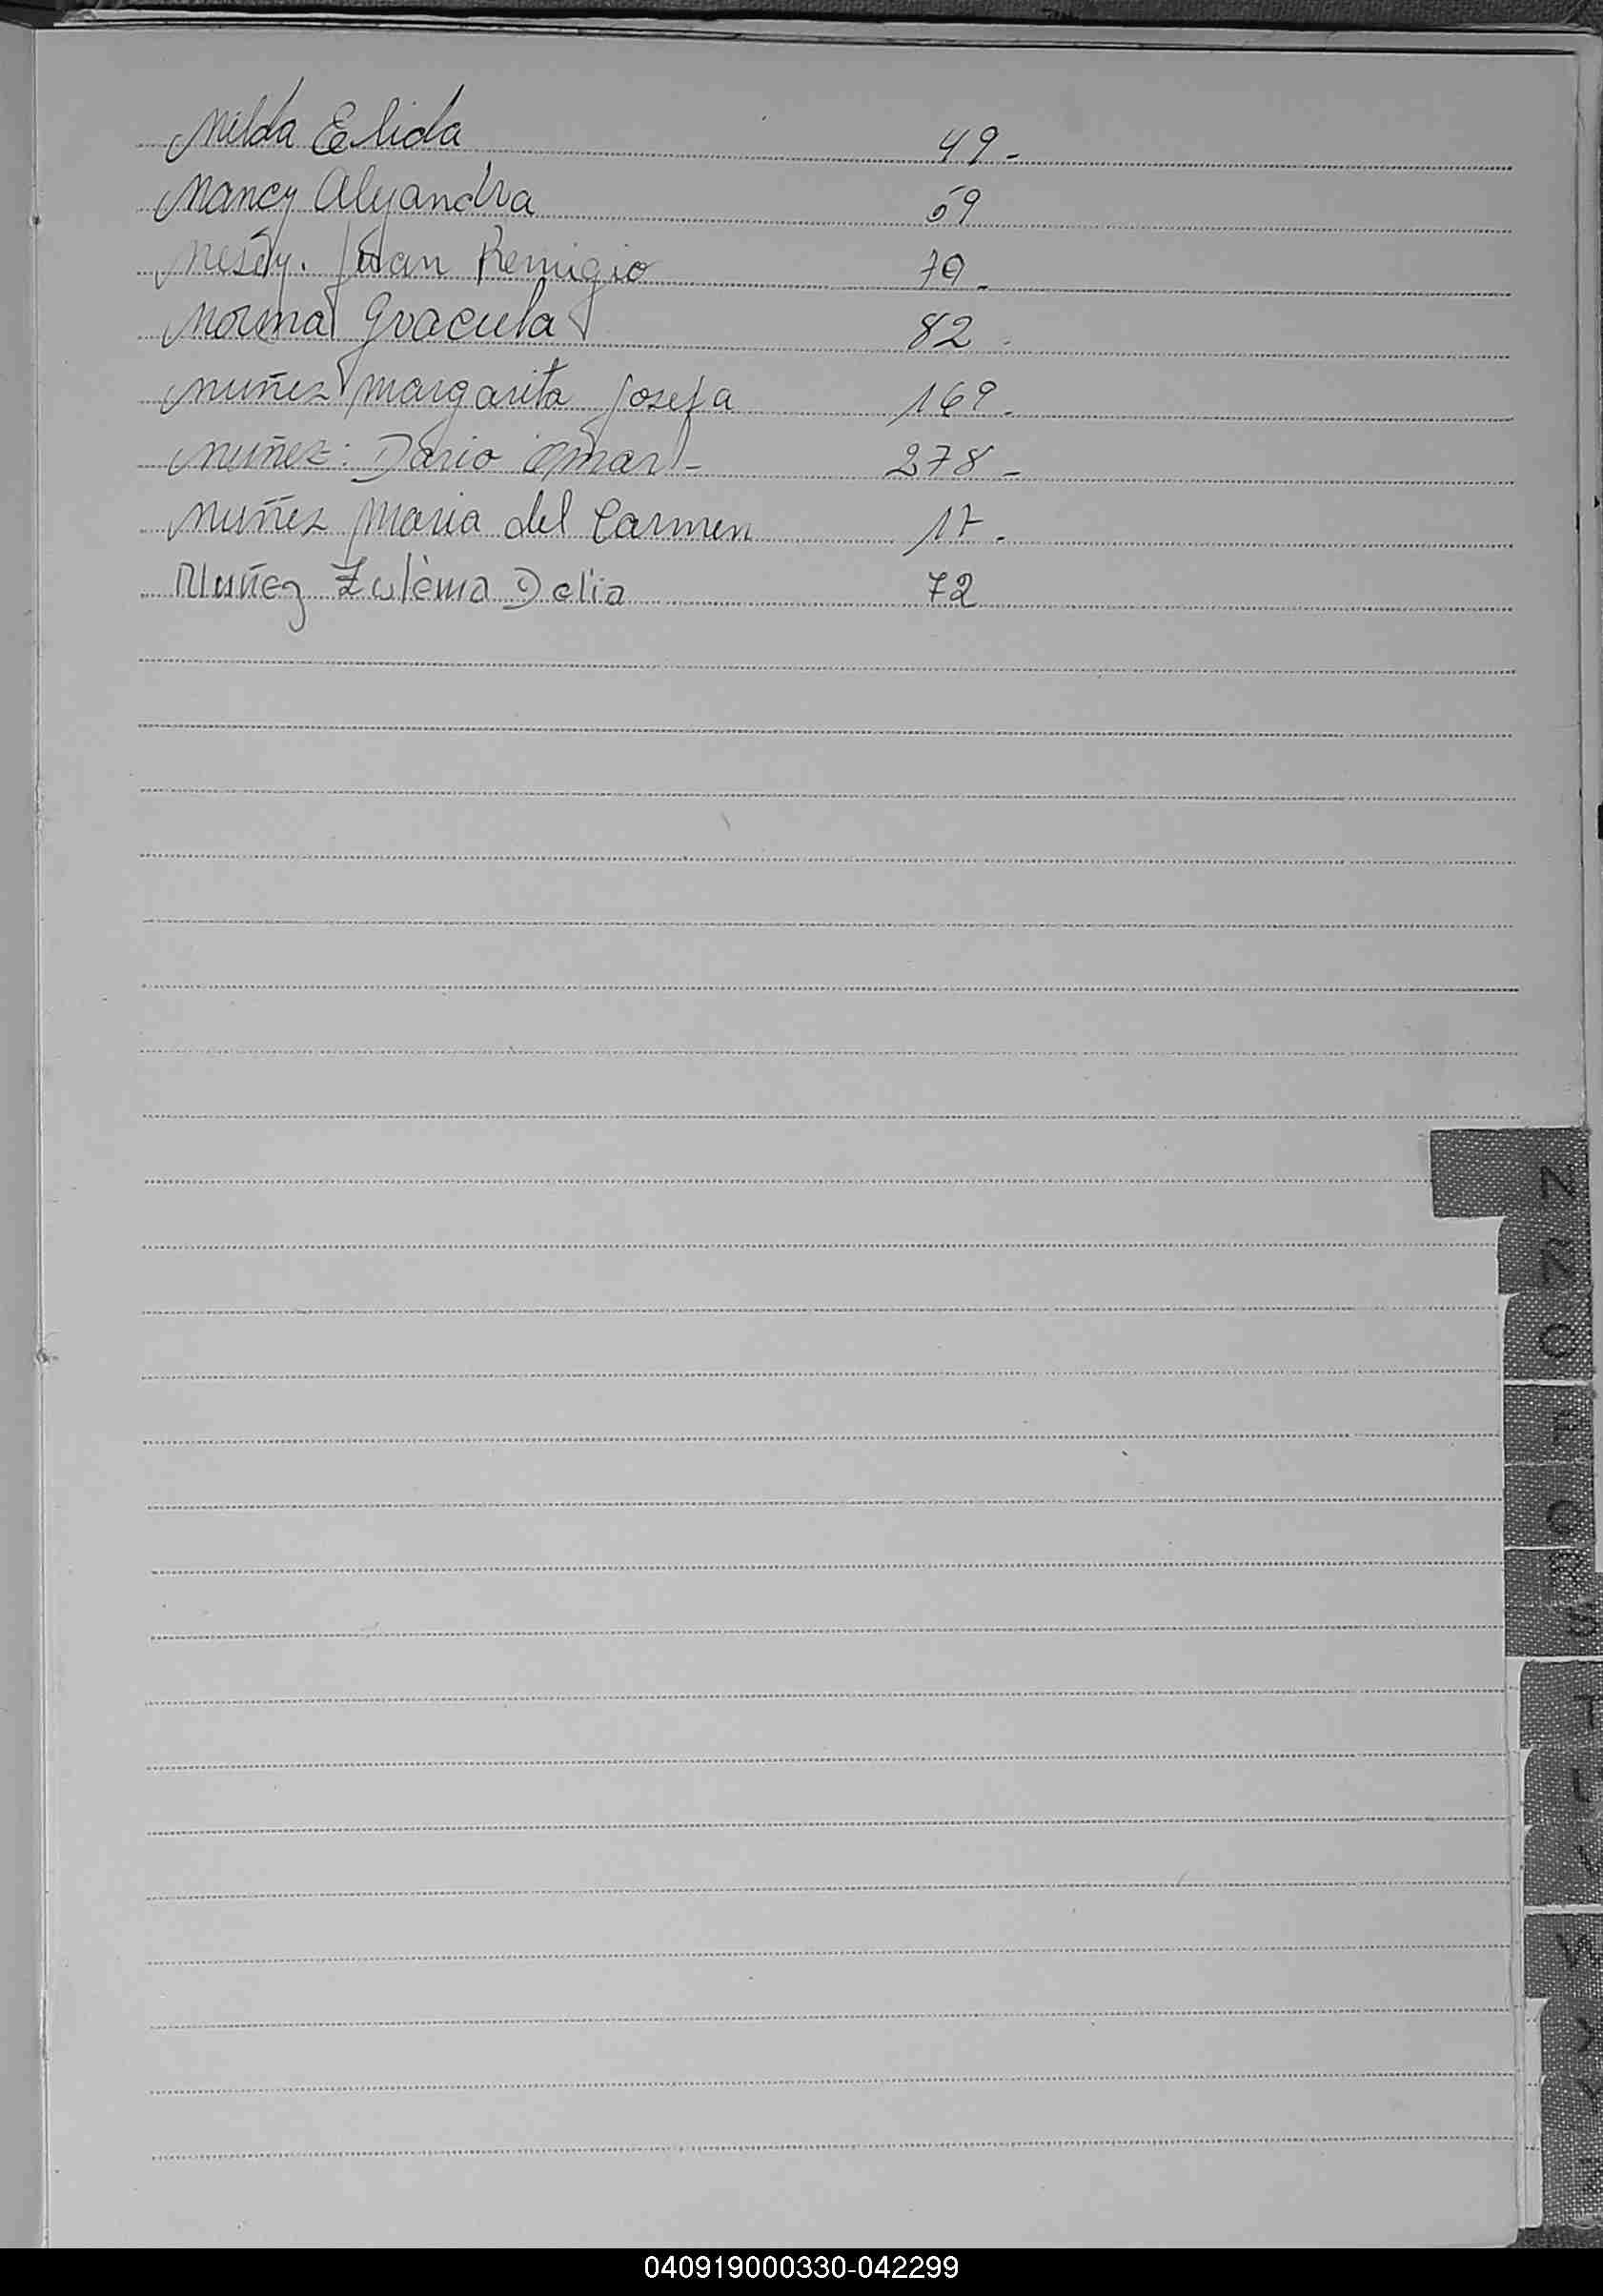 Nilda Elida 49-
Nancy Alejandra 59
Juan Remigio 79-
Norma Graciela 82-
Nuñez Margarita Josefa 169-
Nuñez: Dario Omar- 278-
Nuñez Maria del Carmen 17-
Nuñez Zulema Delia 72
N
Ñ
O
P
Q
R
S
T
040919000330-042299